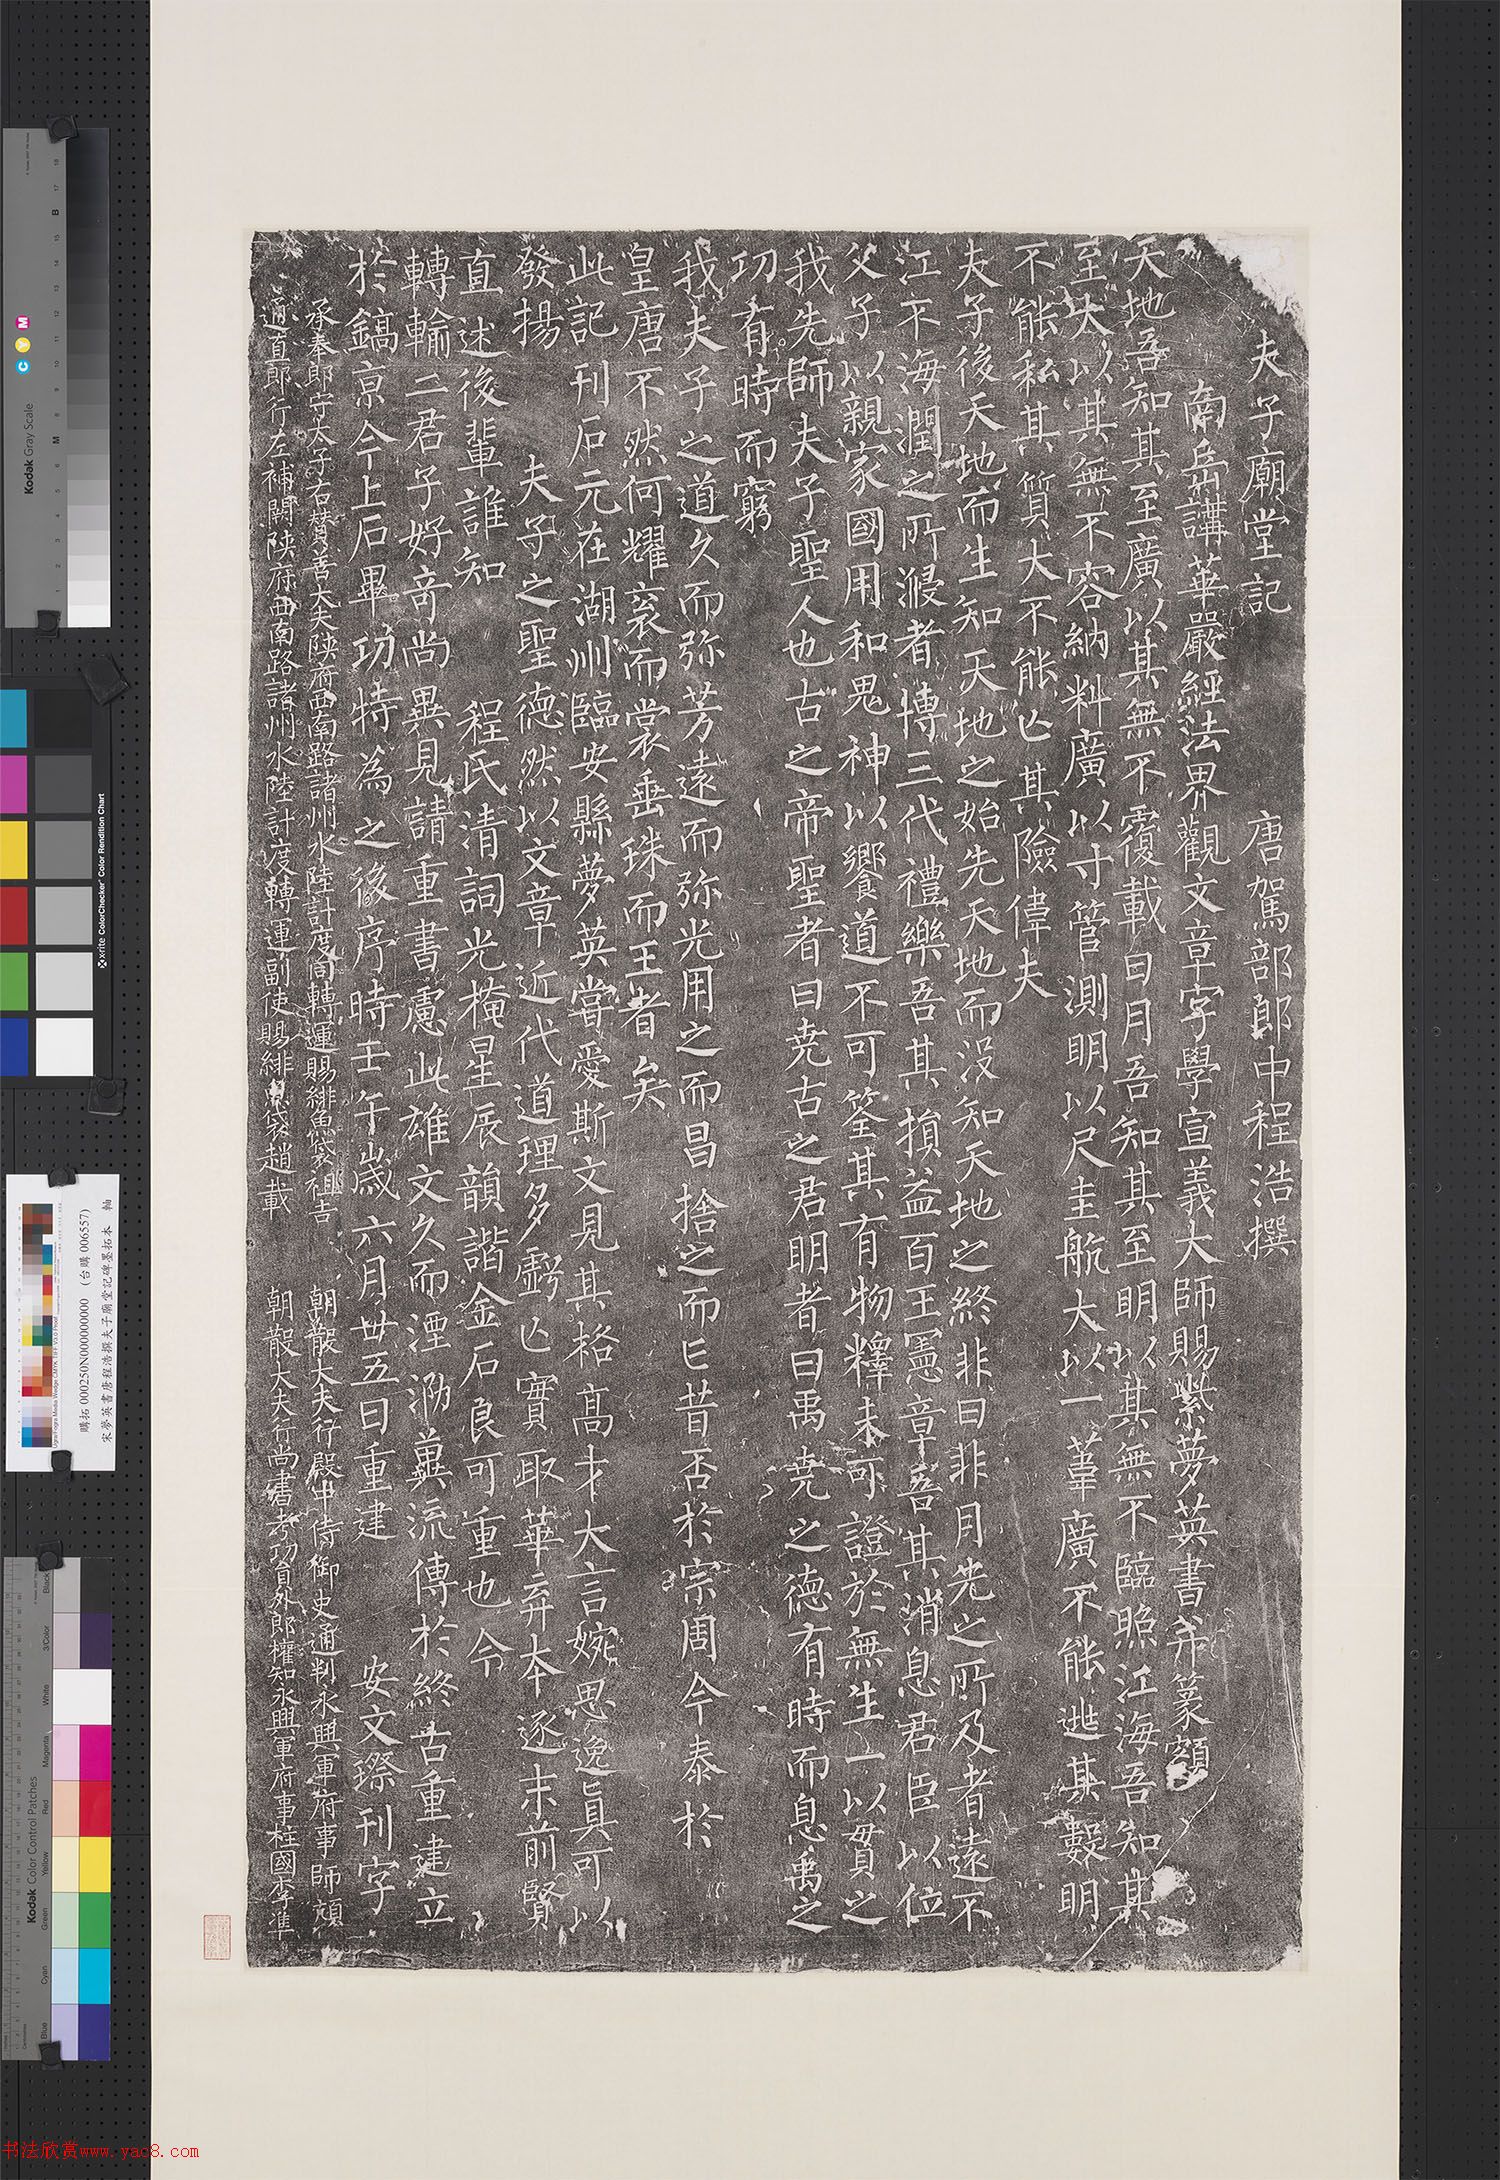 夫子廟堂記 唐駕部郎中程浩撰
南岳講華嚴經法界觀文章字學宣義大師賜紫夢英書并篆額
天地吾知其至廣以其無不覆載日月吾知其至明以其無不臨照江海吾知其
至大以其無不容納料廣以寸管測明以尺圭航大以一葦廣不能逃其數明
不能私其質大不能亡其險偉夫
夫子後天地而生知天地之始先天地而沒知天地之終非日非月光之所及者遠不
江不海潤之所浸者博三代禮樂吾其損益百王憲章吾其消息君臣以位
父子以親家國用和鬼神以饗道不可筌其有物釋未可證於無生一以貫之
我先師夫子聖人也古之帝聖者曰堯古之君明者曰禹堯之德有時而息禹之
功有時而窮
我夫子之道久而弥芳遠而弥光用之而昌捨之而亡昔否於宗周今泰於
皇唐不然何耀袞而裳垂珠而王者矣
此記刊石元在湖州臨安縣夢英嘗愛斯文見其格高才大言婉思逸真可以
發揚 夫子之聖德然以文章近代道理多虧亡實取華弃本逐末前賢
直述後輩誰知 程氏清詞光掩星辰韻諧金石良可重也今
轉輸二君子好奇尚異見請重書慮此雄文久而湮泐冀流傳於終古重建立
於鎬京今上石畢功特為之後序時壬午歲六月廿五日重建 安文璨刊字
承奉郎守太子右贊善大夫陝府西南路諸州水陸計度同轉運賜緋魚袋祖吉 朝散大夫行殿中侍御史通判永興軍府事師頏
通直郎行左補闕陝府西南路諸州水陸計度轉運副使賜緋魚袋趙載 朝散大夫行尚書考功員外郎權知永興軍府事柱國李準
Kodak Gray Scale
C Y M
x-rite ColorChecker Color Rendition Chart
購拓 000250N000000000 (台購 006557)
宋夢英書唐程浩撰夫子廟堂記碑墨拓本 軸
Kodak Color Control Patches
Blue Cyan Green Yellow Red Magenta White 3/Color Black
书法欣赏www.yac8.com